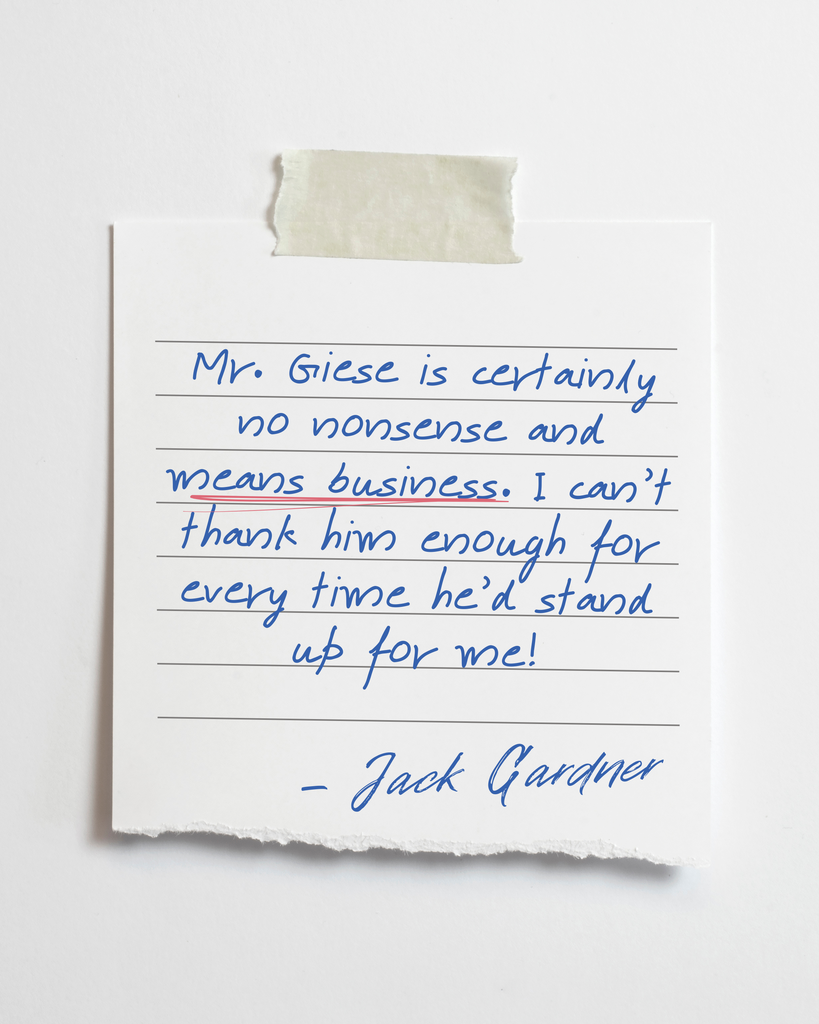 Mr. Giese is certainly
no nonsense and
means business. I can't
thank him enough for
every time he'd stand
up for me!
– Jack Gardner